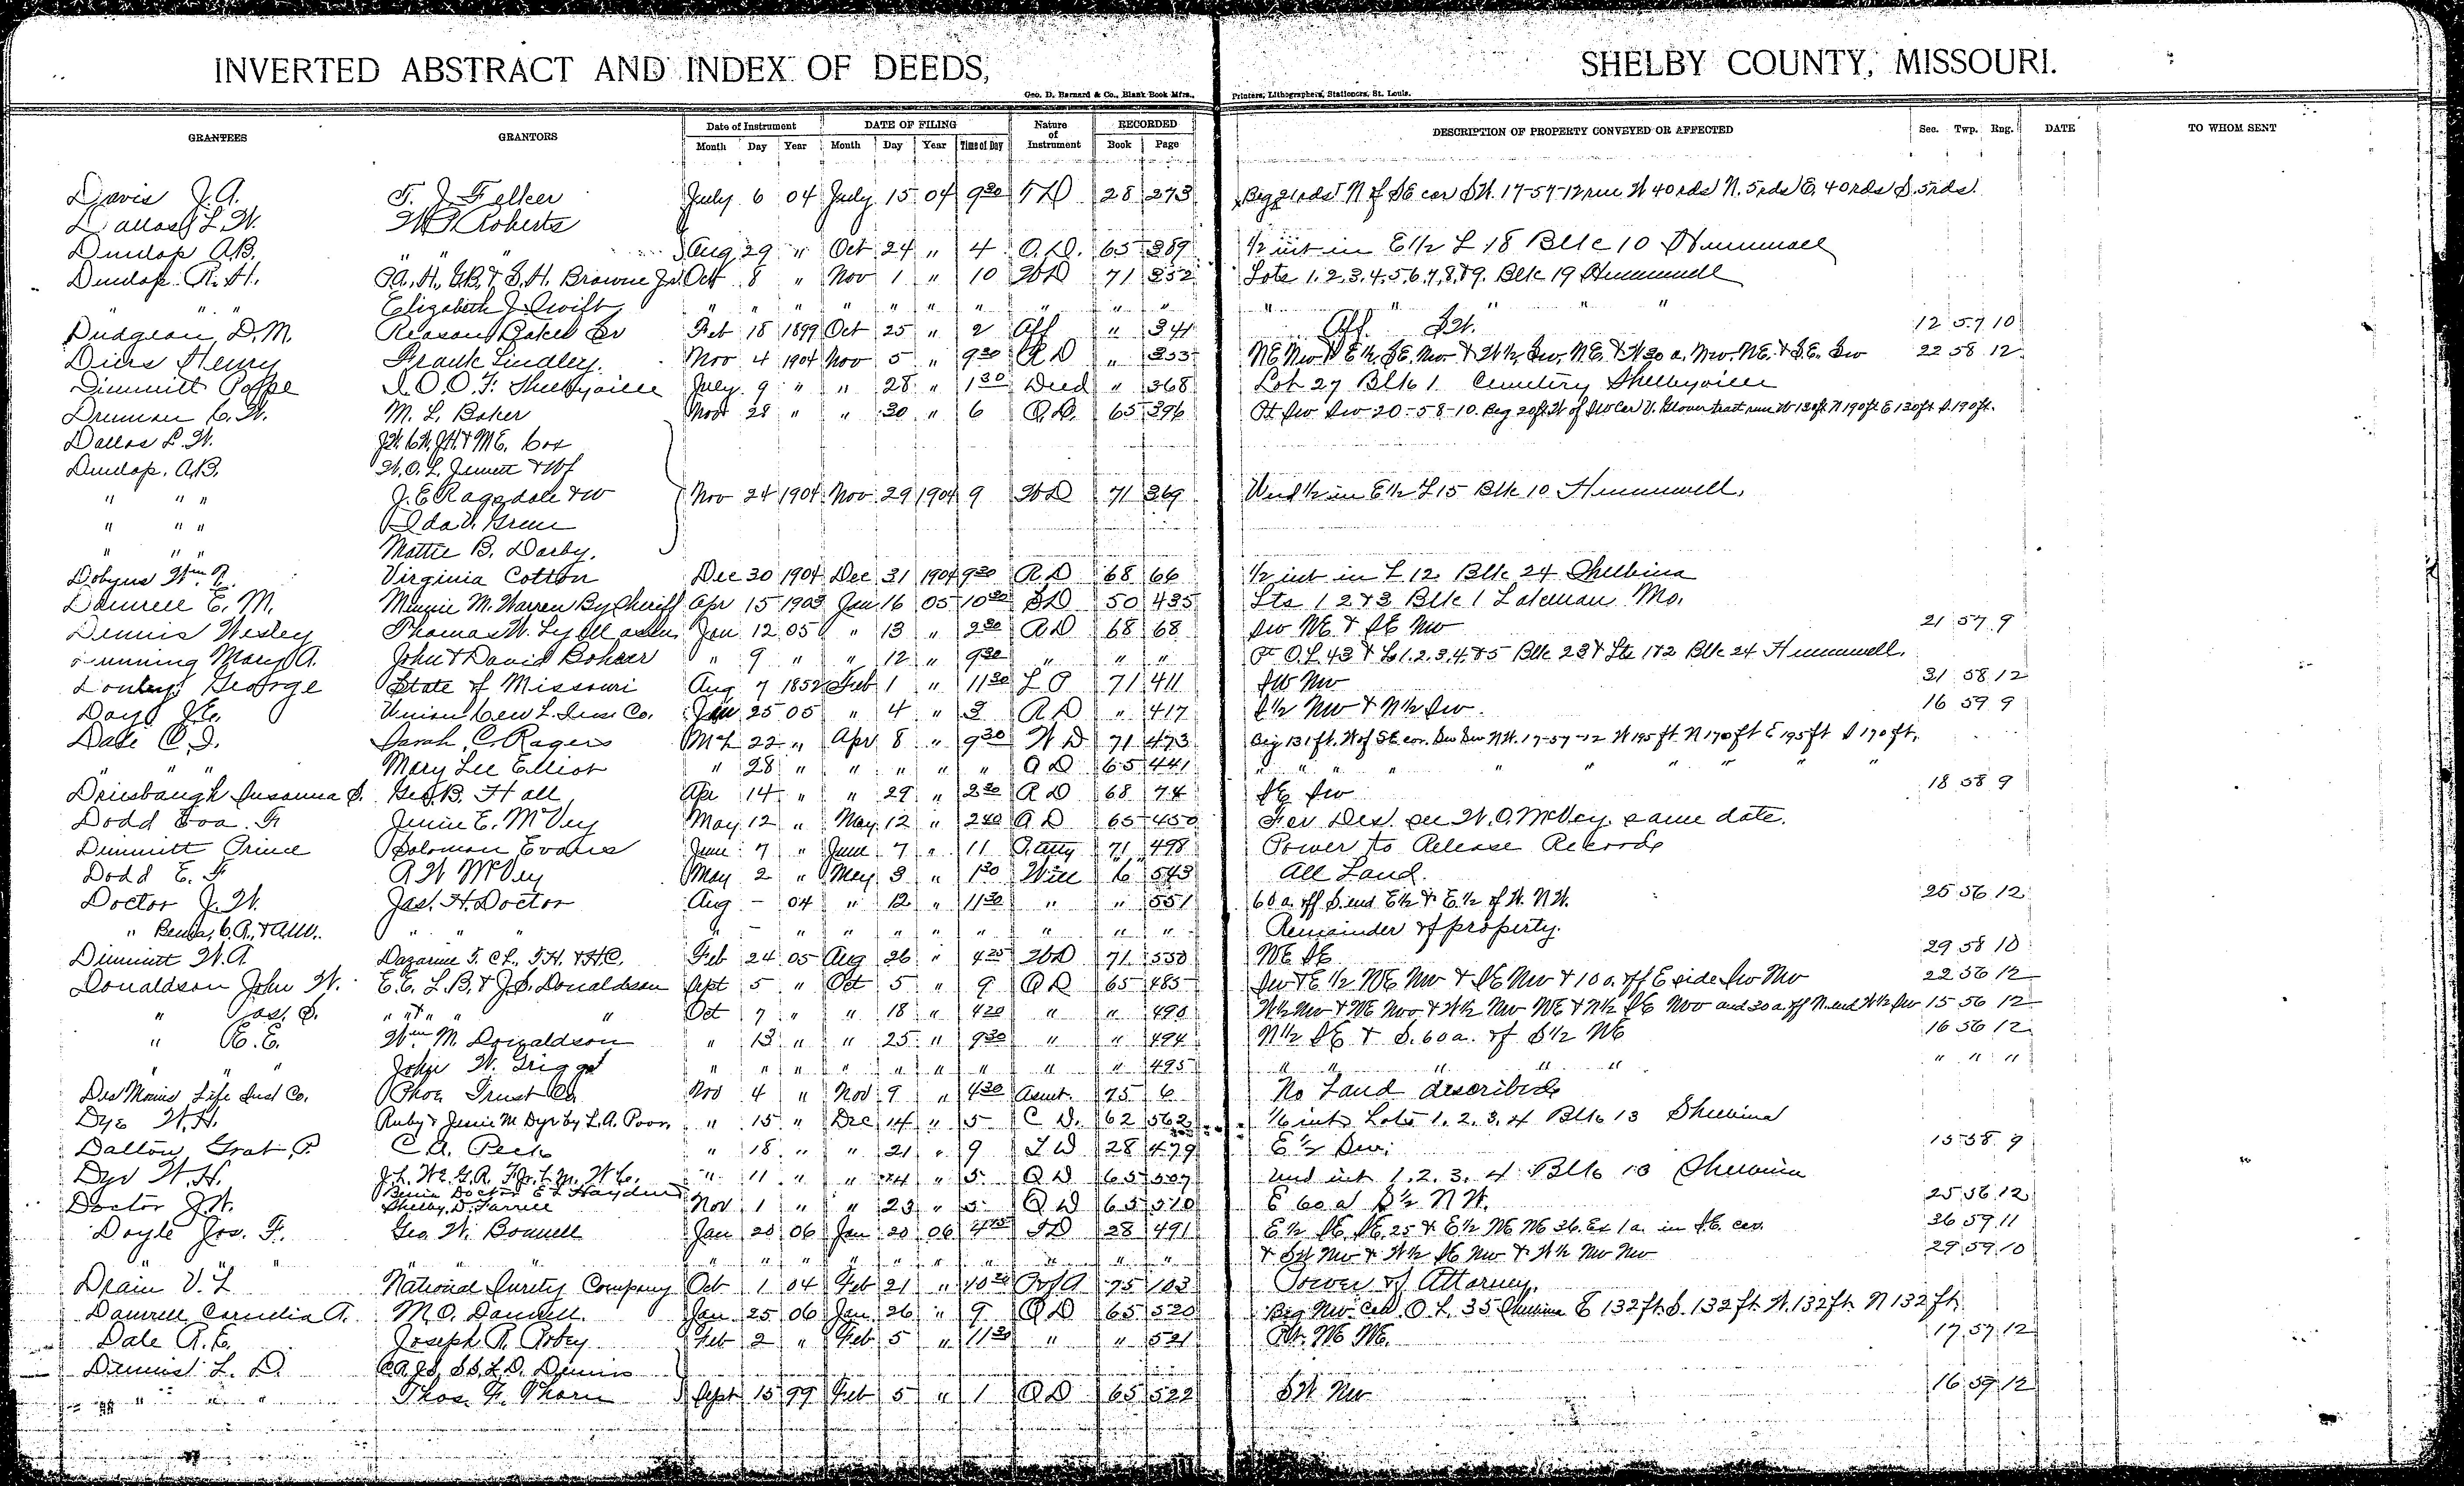 INVERTED ABSTRACT AND INDEX OF DEEDS, SHELBY COUNTY, MISSOURI.
Geo. D. Barnard & Co., Blank Book Mfrs., Printers, Lithographers, Stationers, St. Louis.
GRANTEES GRANTORS Date of Instrument DATE OF FILING Nature of Instrument RECORDED DESCRIPTION OF PROPERTY CONVEYED OR AFFECTED Sec. Twp. Rng. DATE TO WHOM SENT
Month Day Year Month Day Year Time of Day Book Page
Davis J.A. T. J. Felker July 6 04 July 15 04 9 30 TD 28 273 Beg 21 rds N of SE cor SW. 17-57-12 run W 40 rds N. 5 rds E. 40 rds S. 5 rds.
Dallas L. W. Roberts
Dunlap A.B. " " Aug 29 " Oct 24 " 4 Q.D. 65 389 1/2 int in E 1/2 L 18 Blk 10 Hunnewell
Dunlap R. H. S. H. Browne Jr. Oct 8 " Nov 1 " 10 WD 71 352 Lots 1.2.3.4.5.6.7.8.&9. Blk 19 Hunnewell
" " " Elizabeth J. Swift " " " " " " " " " " " " " "
Dudgeon D.M. Reason Baker Feb 18 1899 Oct 25 " 2 Aff " 341 Aff. SW. 12 57 10
Diers Henry Frank Lindley. Nov 4 1904 Nov 5 " 9 30 " 353 22 58 12
Dimmitt Pope I.O.O.F. Shelbyville July 9 " " 28 " 1 30 Deed " 368 Lot 27 Blk 1 Cemetery Shelbyville
M. L. Baker Nov 28 " " 30 " 6 Q.D. 65 396 Pt Sw Sw 20-58-10. Beg 20 ft W of Glover tract run W 130 ft N 190 ft E 130 ft S. 190 ft.
Dallas L. W. J.H. & M.E. Cox
Dunlap. A.B. W.O.L. Jewett & Wf
" " " J. E. Ragsdale & W Nov 24 1904 Nov 29 1904 9 WD 71 369 Und 1/2 in E 1/2 L 15 Blk 10 Hunnewell.
" " " Ida V. Green
" " " Mattie B. Darby.
Dobyns Wm R. Virginia Cotton Dec 30 1904 Dec 31 1904 9 30 68 66 1/2 int in L 12. Blk 24 Shelbina
Damrell E. M. Minnie M. Warren By Sheriff Apr 15 1903 Jan 16 05 10 30 SD 50 435 Lts 1 2 & 3 Blk 1 Lakenan Mo.
Dennis Wesley Thomas W. Jan 12 05 " 13 " 2 30 68 68 Sw NE & SE Nw 21 57 9
Mary A. John & David Bohrer " 9 " " 12 " 9 30 " " " Pt O.L. 43 & L 1.2.3.4.&5 Blk 23 & Lts 1&2 Blk 24 Hunnewell.
George State of Missouri Aug 7 1852 Feb 1 " 11 30 L P 71 411 SW Nw 31 58 12
Day J.E. Union Cen L. Ins Co. Jan 25 05 " 4 " 3 " 417 S 1/2 Nw & N 1/2 Sw. 16 59 9
Dale C.I. Sarah C. Rogers Mch 22 " Apr 8 " 9 30 W D 71 473 Beg 131 ft. W of SE cor. 17-57-12 W 195 ft N 170 ft E 195 ft S 170 ft.
" " " Mary Lee Elliot " 28 " " " " " Q D 65 441 " " " " " " " "
Driesbaugh Susanna S. Geo. B. Hall Apr 14 " " 29 " 2 30 68 74 SE Sw 18 58 9
Dodd Eva F. Jennie E. McVey May 12 " May 12 " 2 40 Q D 65 450 For Des. see W.O. McVey same date.
Dimmitt Prince Solomon Evans June 7 " June 7 " 11 P. Atty 71 498 Power to Release Records
Dodd E. F. McVey May 2 " May 3 " 1 30 Will 6 543 All Land.
Doctor J. W. Jas. H. Doctor Aug - 04 " 12 " 11 30 " " 551 60 a. off S. end E 1/2 & E. 1/2 of W. NW. 25 56 12
" " " " " - " " " " " " " " Remainder of property.
Dimmitt W. A. Feb 24 05 Aug 26 " 4 25 WD 71 550 NE SE 29 58 10
Donaldson John W. E.E. L.B. & J.S. Donaldson Sept 5 " Oct 5 " 9 Q D 65 485 1/2 NE Nw & SE Nw & 10 a. off E side Sw Nw 22 56 12
" Jas. S. " " " " Oct 7 " " 18 " 4 20 " " 490 and 30 a. off N. end W 1/2 Sw 15 56 12
" E. E. Wm. M. Donaldson " 13 " " 25 " 9 30 " " 494 N 1/2 SE & S. 60 a. of S 1/2 NE 16 56 12
" " John W. Griggs " " " " " " " " " 495 " " " " " " "
Des Moines Life Ins Co. Phoe Trust Co. Nov 4 " Nov 9 " 4 30 Asmt. 75 6 No Land described
Dye W.H. Ruby & Jessie M Dye by L.A. Poor " 15 " Dec 14 " 5 C D. 62 562 1/6 int Lots 1. 2. 3. 4 Blk 13 Shelbina
Dalton Grat P. C. A. Peck " 18 " " 21 " 9 T D 28 479 E 1/2 Sw. 15 58 9
Dye W.H. " 11 " " 5 Q D 65 509 und int 1. 2. 3. 4 Blk 13 Shelbina
Doctor J.W. Shelby D. Farrell Nov 1 " " 23 " 5 Q D 65 510 E 60 a S 1/2 NW. 25 56 12
Doyle Jos. F. Geo. W. Bonnell Jan 20 06 Jan 20 06 TD 28 491 E 1/2 SE SE 25 & E 1/2 NE NE 36. Ex 1 a. in SE cor. 36 59 11
" " " " " " " " " " " & SW Nw & W 1/2 SE Nw & W 1/2 Nw Nw 29 59 10
Drain V. L. National Surety Company Oct 1 04 Feb 21 " P of A 75 103 Power of Attorney.
Damrell Cornelia A. M.O. Damrell. Jan 25 06 Jan 26 " 9 Q D 65 520 Beg Nw. Cor. O.L. 35 Shelbina E 132 ft. S. 132 ft. W. 132 ft. N 132 ft.
Dale R.E. Joseph R. Feb 2 " Feb 5 " 11 30 " " 521 Pt. NE NE. 17 57 12
Dennis L. D. L.D. Dennis
" " " Thos. F. Thorn Sept 15 99 Feb 5 " 1 Q D 65 522 SW Nw 16 59 12